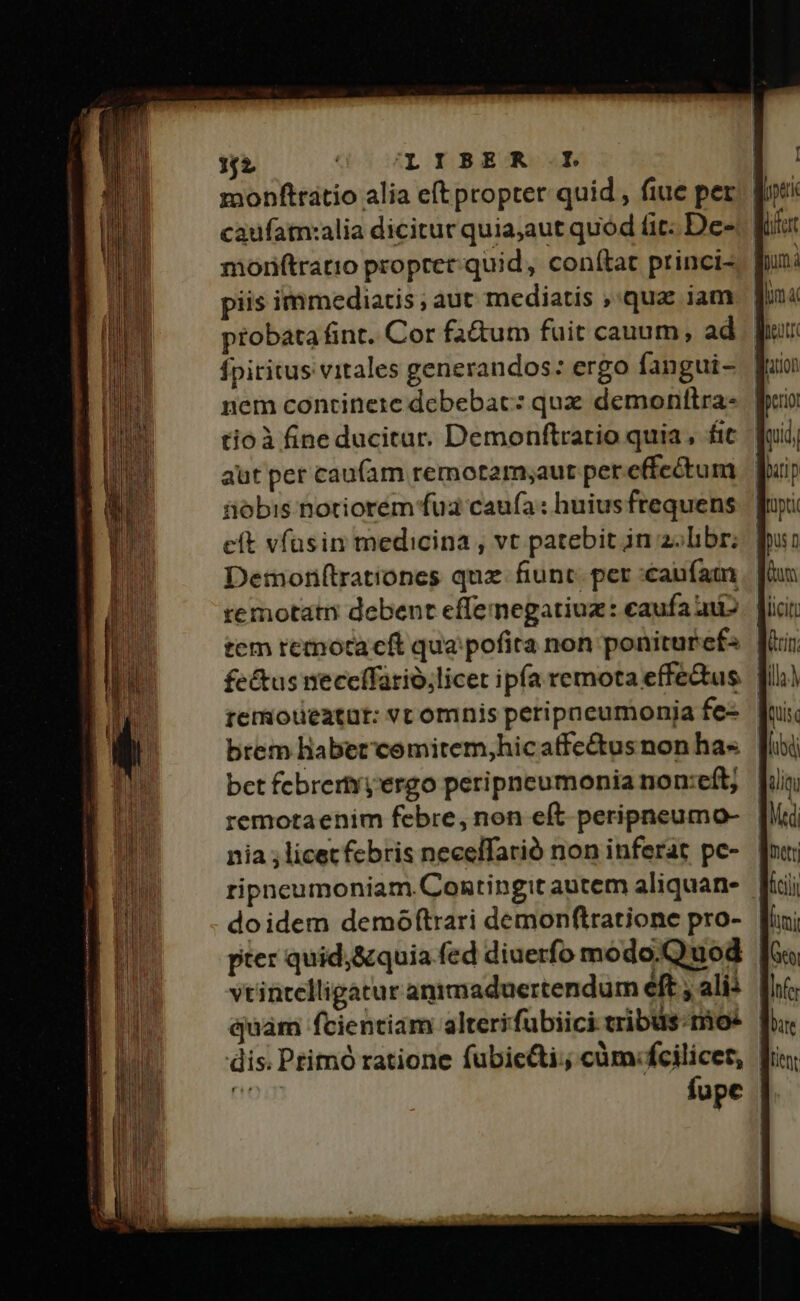 152 LIBER I.
monſtratio alia eſt propter quid, ſiue per
cauſam: alia dicitur quia, aut quòd ſit. De-
monſtratio propter quid, conſtat princi-
piis immediatis, aut mediatis, quæ iam
probata ſint. Cor factum fuit cauum, ad
ſpiritus vitales generandos: ergo ſangui-
nem continere debebat: quæ demonſtra-
tio à fine ducitur. Demonſtratio quia, fit
aut per cauſam remotam, aut per effectum
nobis notiorem ſua cauſa: huius frequens
eſt vſus in medicina, vt patebit in 2. libr.
Demonſtrationes quæ fiunt per cauſam
remotam debent eſſe negatiuæ: cauſa au-
tem remota eſt qua poſita non ponitur ef-
fectus neceſſariò, licet ipſa remota effectus
remoueatur: vt omnis peripneumonia fe-
brem habet comitem, hic affectus non ha-
bet febrem, ergo peripneumonia non eſt;
remota enim febre, non eſt peripneumo-
nia; licet febris neceſſariò non inferat pe-
ripneumoniam. Contingit autem aliquan-
do idem demõſtrari demonſtratione pro-
pter quid, & quia ſed diuerſo modo. Quod
vt intelligatur animaduertendum eſt, ali-
quam ſcientiam alteri ſubiici tribus mo-
dis. Primò ratione ſubiecti, cùm ſcilicet,
ſupe